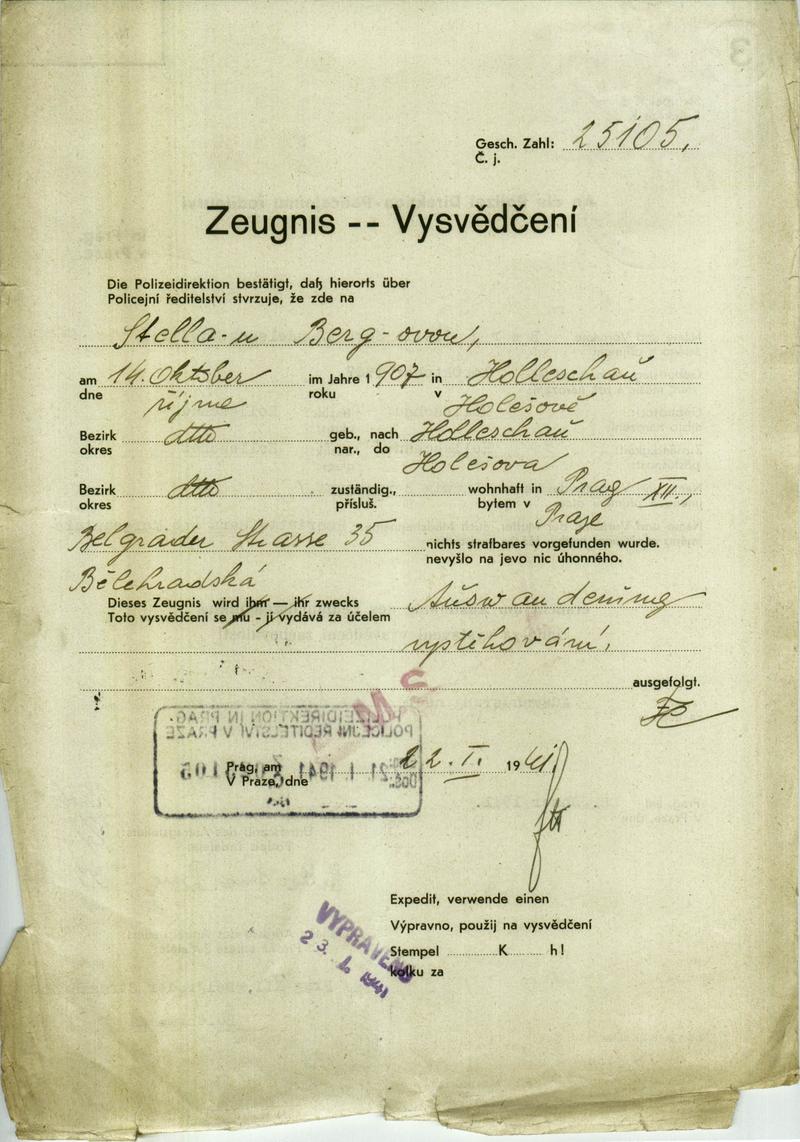 Gesch. Zahl: 25105.
Č. j.
Zeugnis -- Vysvědčení
Die Polizeidirektion bestätigt, daß hierorts über
Policejní ředitelství stvrzuje, že zde na
Stella-u Berg-ovou,
am 14. Oktober im Jahre 1907 in Holleschau
dne října roku v Holešově
Bezirk dtto geb., nach Holleschau
okres nar., do Holešova
Bezirk dtto zuständig., wohnhaft in Prag XII.,
okres přísluš. bytem v Praze
Belgrader Strasse 35 nichts strafbares vorgefunden wurde.
nevyšlo na jevo nic úhonného.
Bělehradská
Dieses Zeugnis wird ihm — ihr zwecks Auswanderung
Toto vysvědčení se mu - jí vydává za účelem
vystěhování,
ausgefolgt.
POLIZEIDIREKTION IN PRAG
POLICEJNÍ ŘEDITELSTVÍ V PRAZE
Prag, am 22. I. 1941
V Praze, dne
Expedit, verwende einen
Výpravno, použij na vysvědčení
Stempel K h!
kolku za
VYPRAVENO
23. 1. 1941